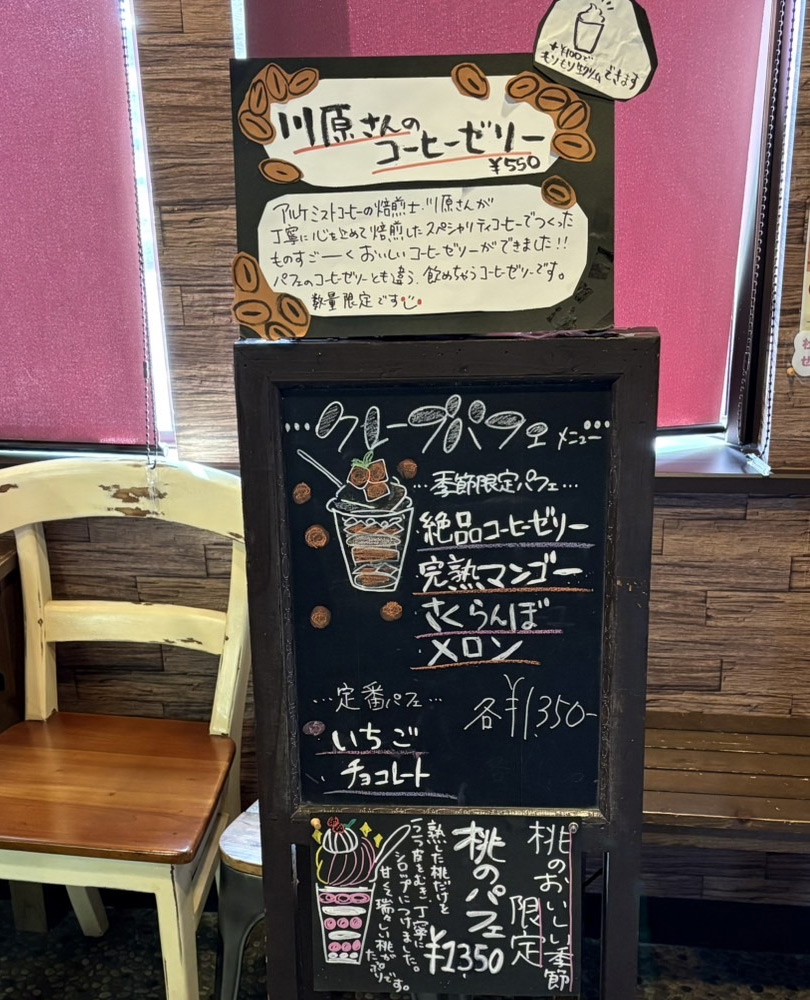 +¥100で
もりもり生クリームできます
川原さんの
コーヒーゼリー
¥550
アルケミストコーヒーの焙煎士、川原さんが
丁寧に心を込めて焙煎したスペシャリティコーヒーでつくった
ものすごーーくおいしいコーヒーゼリーができました!!
パフェのコーヒーゼリーとも違う、飲めちゃうコーヒーゼリーです。
数量限定です
…クレープパフェメニュー…
…季節限定パフェ…
絶品コーヒーゼリー
完熟マンゴー
さくらんぼ
メロン
…定番パフェ…
各¥1,350-
いちご
チョコレート
桃のおいしい季節
限定
桃のパフェ
¥1350
熟した桃だけを
1つ1つ皮をむき、丁寧に
シロップにつけました。
甘くて瑞々しい桃が
たっぷりです。